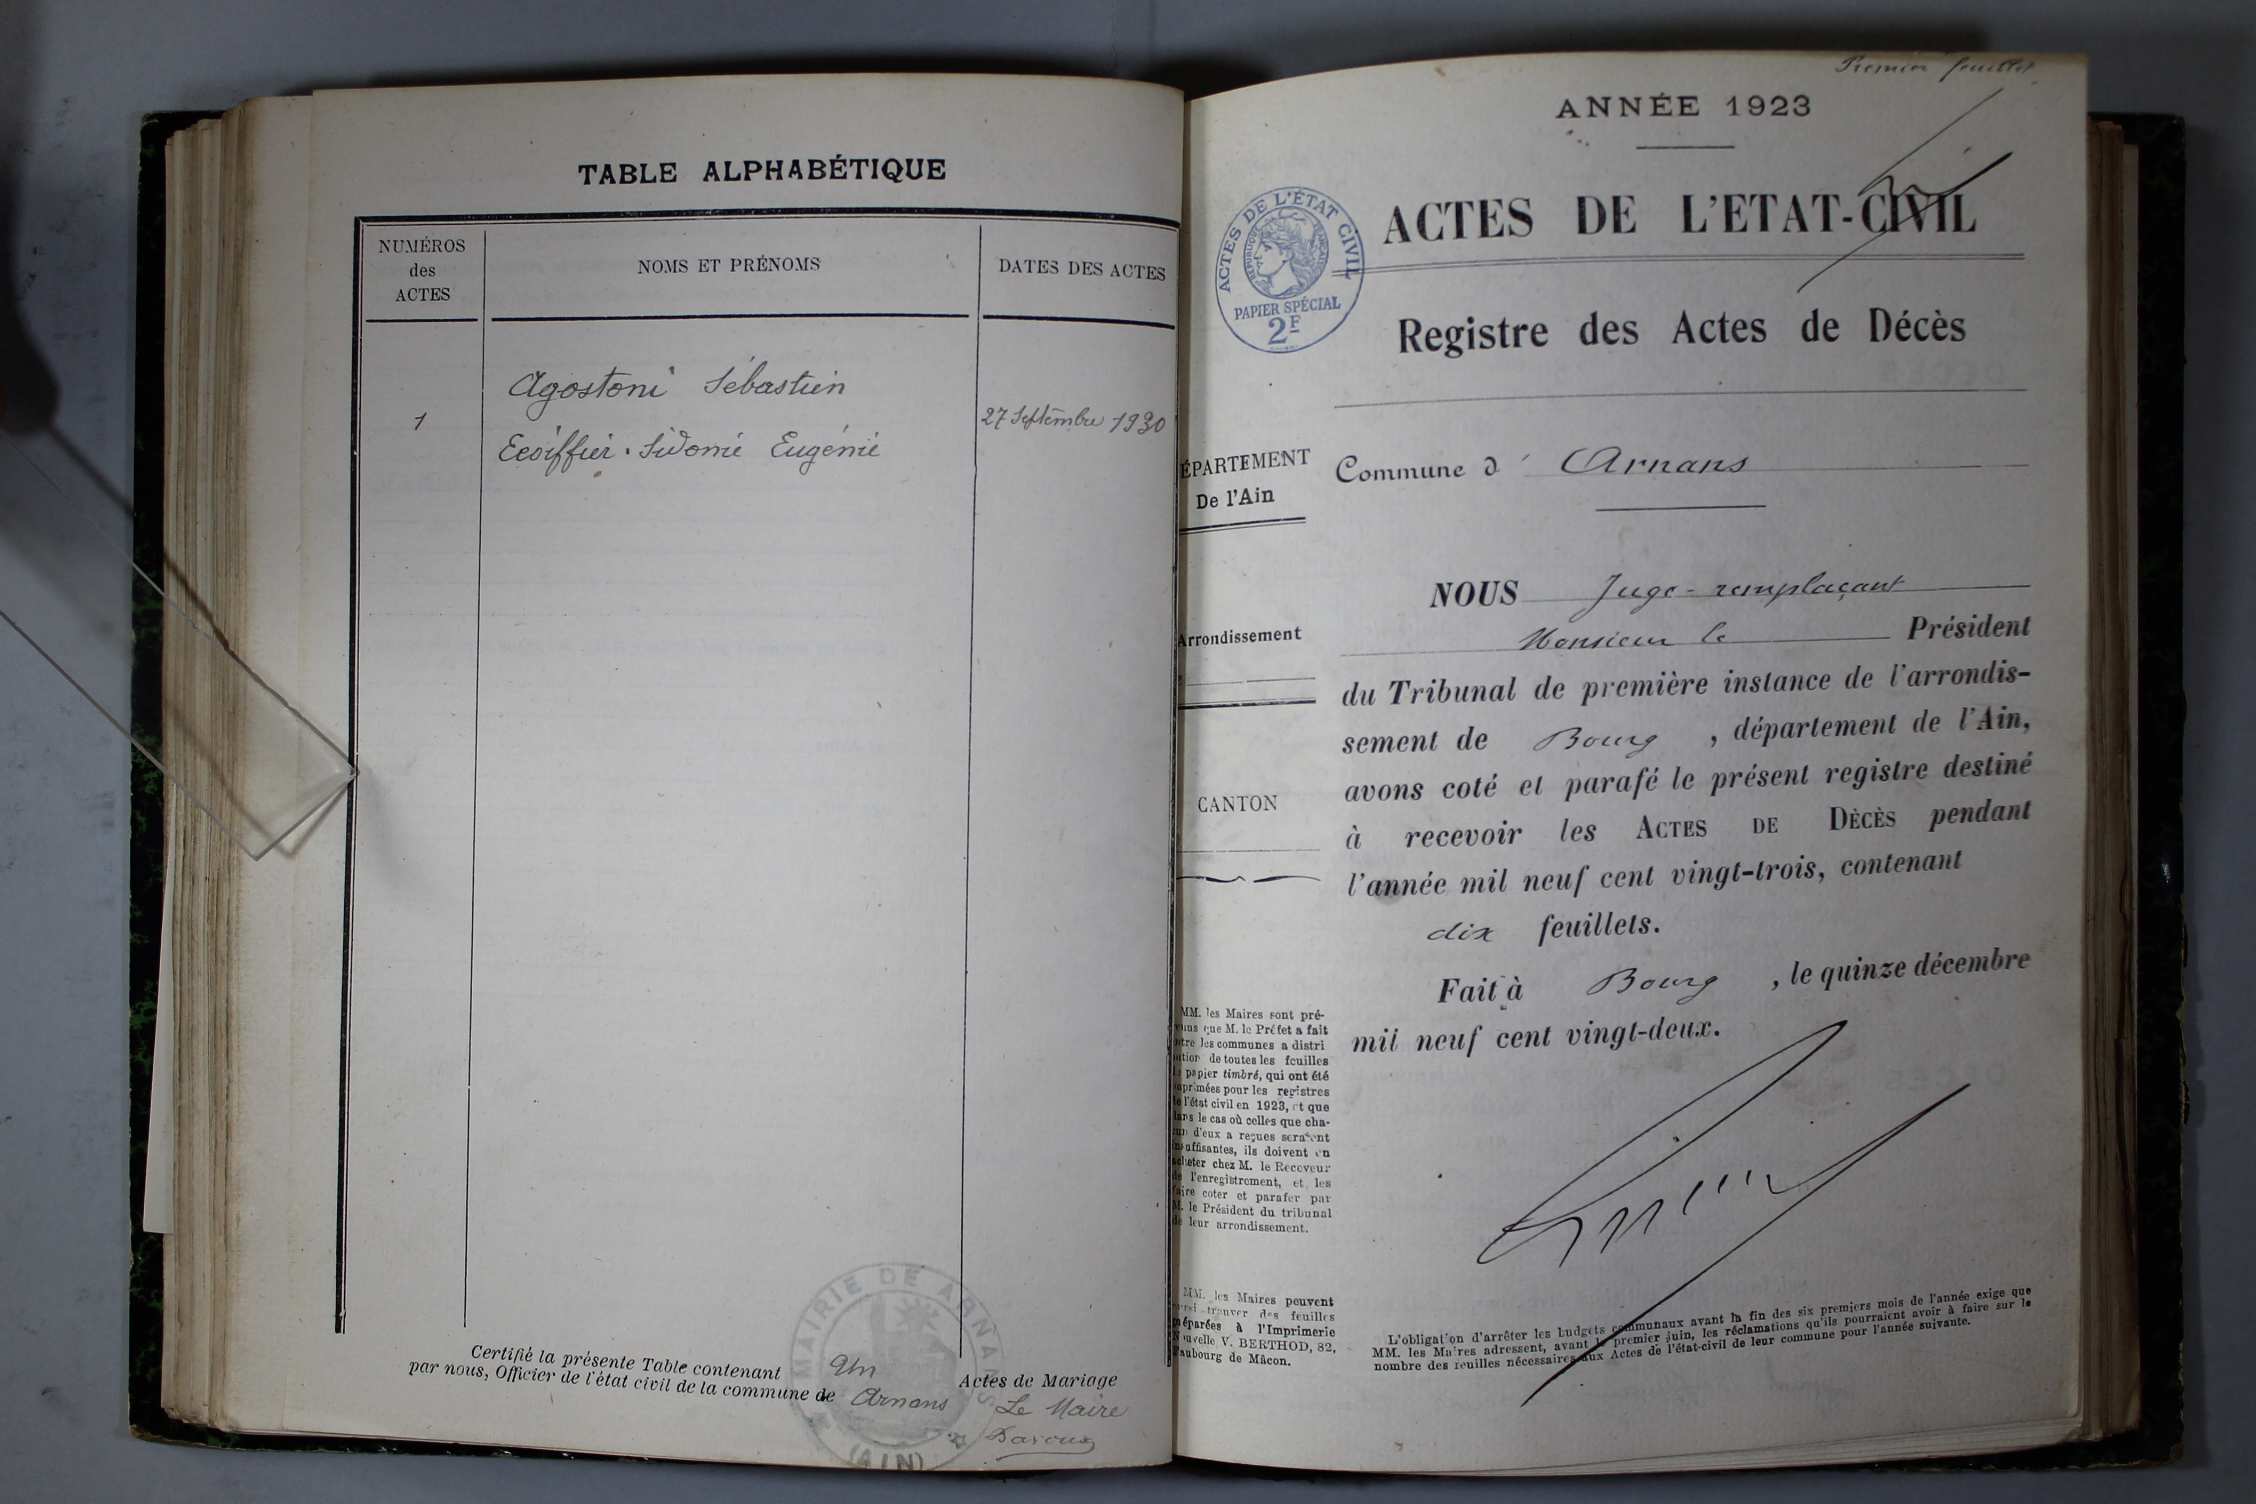 TABLE ALPHABÉTIQUE
NUMÉROS
des
ACTES
NOMS ET PRÉNOMS
DATES DES ACTES
Agostoni Sébastien
1
27 Septembre 1930
Ecoiffier Sidonie Eugénie
MAIRIE DE ARNANS
(AIN)
Certifié la présente Table contenant un Actes de Mariage
par nous, Officier de l'état civil de la commune de Arnans Le Maire
Premier feuillet
ANNÉE 1923
ACTES DE L'ÉTAT CIVIL
RÉPUBLIQUE FRANÇAISE
PAPIER SPÉCIAL
2F
ACTES DE L'ETAT-CIVIL
Registre des Actes de Décès
DÉPARTEMENT
De l'Ain
Arrondissement
CANTON
Commune d' Arnans
NOUS Juge-remplaçant
Monsieur le Président
du Tribunal de première instance de l'arrondis-
sement de Bourg, département de l'Ain,
avons coté et parafé le présent registre destiné
à recevoir les ACTES DE DÈCÈS pendant
l'année mil neuf cent vingt-trois, contenant
dix feuillets.
Fait à Bourg, le quinze décembre
mil neuf cent vingt-deux.
MM. les Maires sont pré-
venus que M. le Préfet a fait
entre les communes a distri
bution de toutes les feuilles
de papier timbré, qui ont été
imprimées pour les registres
de l'état civil en 1923, et que
dans le cas où celles que cha-
cun d'eux a reçues seraient
insuffisantes, ils doivent en
acheter chez M. le Receveur
de l'enregistrement, et les
faire coter et parafer par
M. le Président du tribunal
de leur arrondissement.
MM. les Maires peuvent
aussi trouver des feuilles
préparées à l'Imprimerie
Nouvelle V. BERTHOD, 82,
faubourg de Mâcon.
L'obligation d'arrêter les budgets communaux avant la fin des six premiers mois de l'année exige que
MM. les Maires adressent, avant le premier juin, les réclamations qu'ils pourraient avoir à faire sur le
nombre des feuilles nécessaires aux Actes de l'état-civil de leur commune pour l'année suivante.